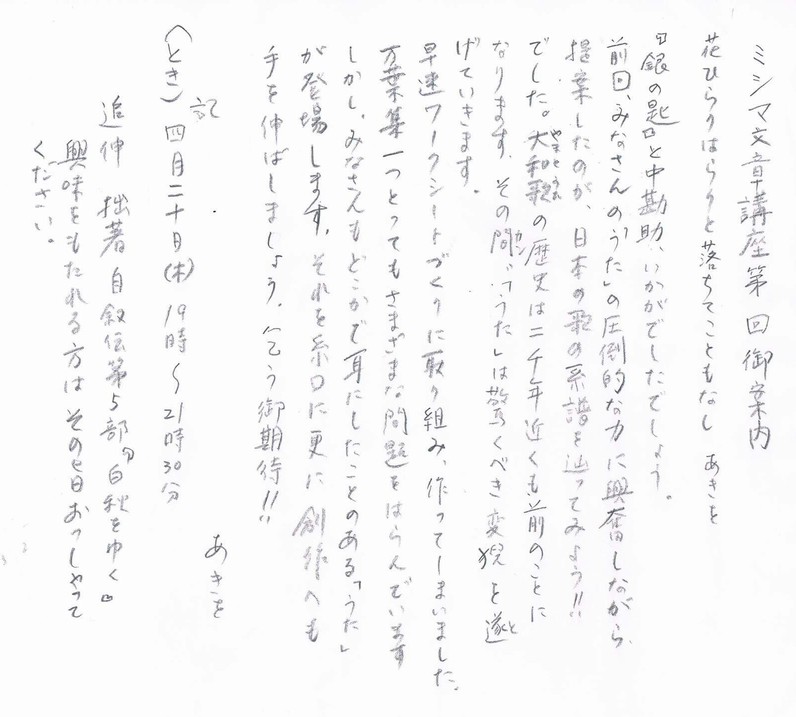 ミシマ文章講座第 回御案内
花ひらりはらりと落ちてこともなし あきを
『銀の匙』と中勘助、いかがでしたでしょう。
前回、みなさんの「うた」の圧倒的な力に興奮しながら、
提案したのが、日本の歌の系譜を辿ってみよう!!
でした。大和歌の歴史は二千年近くも前のことに
なります。その間、「うた」は驚くべき変貌を遂
げていきます。
早速ワークシートづくりに取り組み、作ってしまいました。
万葉集一つとってもさまざまな問題をはらんでいます
しかし、みなさんもどこかで耳にしたことのある「うた」
が登場します。それを糸口に更に創作へも
手を伸ばしましょう。乞う御期待!!
あきを
記
(とき)四月二十日(木)19時~21時30分
追伸 拙著自叙伝第5部『白秋をゆく』
興味をもたれる方はその日おっしゃって
ください。